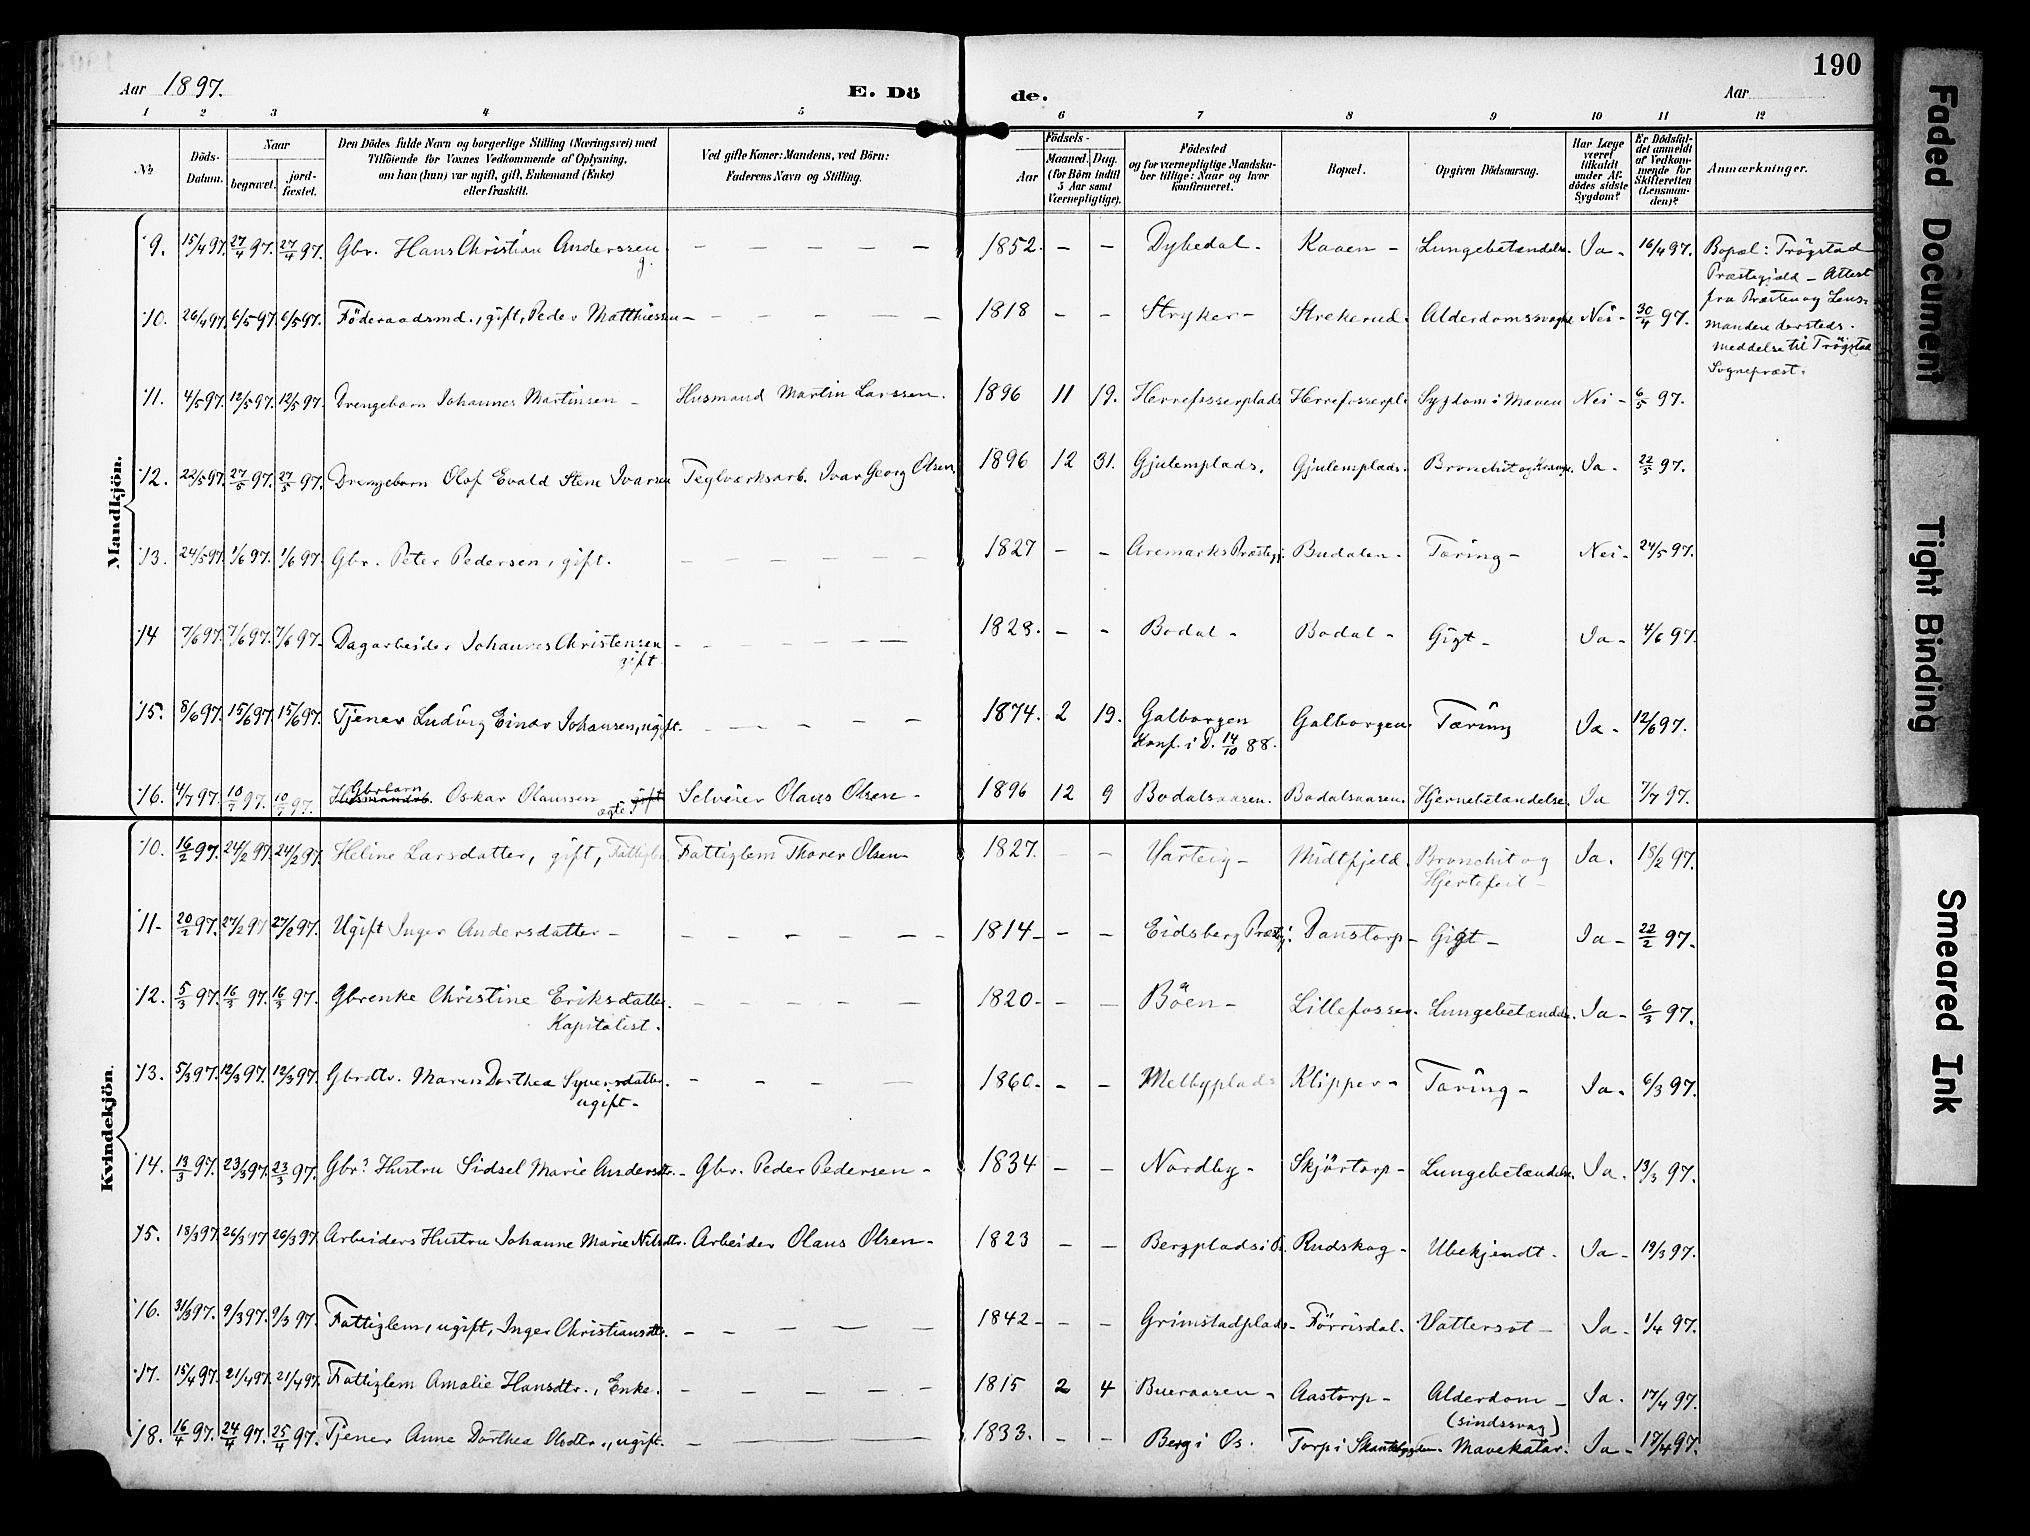 190
Aar 1897.
E. Döde.
Aar
1 2 3 4 5 6 7 8 9 10 11 12
№
Döds-Datum.
Naar
begravet.
jordfæstet.
Den Dödes fulde Navn og borgerlige Stilling (Næringsvei) med
Tilföiende for Voxnes Vedkommende af Oplysning,
om han (hun) var ugift, gift, Enkemand (Enke)
eller fraskilt.
Ved gifte Koner: Mandens, ved Börn:
Faderens Navn og Stilling.
Födsels-
Aar
Maaned. Dag.
(for Börn indtil
5 Aar samt
Værnepligtige).
Födested
og for værnepligtige Mandskaber tillige: Naar og hvor
konfirmeret.
Bopæl.
Opgiven Dödsaarsag.
Har Læge
været
tilkaldt
under Afdödes sidste
Sygdom?
Er Dödsfaldet anmeldt
af Vedkommende for
Skifteretten
(Lensmanden)?
Anmærkninger.
Mandkjön.
9. 15/4 97. 27/4 97. 27/4 97. Gbr. Hans Christian Anderssen g. — — — — — 1852. – – Dybedal – Kaaen – Lungebetændelse. Ja – 16/4 97. Bopæl: Trögstad
Præstegjæld – Attest
fra Præsten og Lensmanden dersteds.
Meddelse til Trögstad
Sognepræst.
10. 26/4 97. 6/5 97. 6/5 97. Föderaadsmd., gift, Peder Matthiessen — — — — — 1818 – – Stryker – Strekerud. Alderdomssvaghd Nei – 30/4 97.
11. 4/5 97. 12/5 97. 12/5 97. Drengebarn Johannes Martinsen – Husmand Martin Larssen. 1896 11 19. Herrefosserplads Herrefosserpl. Sygdom i Maven Nei – 6/5 97.
12. 22/5 97. 27/5 97. 27/5 97. Drengebarn Olof Evald Stene Ivarsen Teglværksarb. Ivar Georg Olsen. 1896 12 31. Gjulemplads. Gjulemplads. Bronchit og Ja – 22/5 97.
13. 24/5 97. 1/6 97. 1/6 97. Gbr. Peter Pedersen, gift. — — — — — 1827 – – Aremarks Præstegj. Budalen – Tæring – Nei – 24/5 97.
14 7/6 97. 7/6 97. 7/6 97. Dagarbeider Johannes Christensen gift. — — — — — 1828. – – Bodal – Bodal – Gigt – Ja – 4/6 97.
15. 8/6 97. 15/6 97. 15/6 97. Tjener Ludvig Einar Johansen, ugift. — — — — — 1874. 2 19. Galborgen
Konf. i D. 14/10 88. Galborgen. Tæring Ja – 12/6 97.
16. 4/7 97. 10/7 97. 10/7 97. Gbrbarn Oskar Olaussen ægte Selveier Olaus Olsen – 1896 12 9 Bodalsaasen. Bodalsaasen. Hjernebetændelse. Ja 7/7 97.
Kvindekjön.
10. 16/2 97. 24/2 97. 24/2 97. Heline Larsdatter, gift, Fattiglem Thorer Olsen – 1827. – – Varteig – Midtfjeld. Bronchit og
Hjertefeil – Ja. 18/2 97.
11 – 20/2 97. 27/2 97 27/2 97. Ugift Inger Andersdatter – — — — — — 1814 – – – Eidsberg Præstgj. Danstorp – Gigt – Ja – 22/2 97 –
12. 5/3 97. 16/3 97. 16/3 97. Gbrenke Christine Eriksdatter.
Kapitalist. — — — — 1820 – – – Böen – Lillefossen. Lungebetændelse. Ja – 6/3 97.
13. 5/3 97. 12/3 97. 12/3 97. Gbrdtr. Maren Dorthea Syversdatter.
ugift – — — — — 1860 – – – Melbyplads Klipper – Tæring – Ja – 6/3 97.
14. 13/3 97. 23/3 97. 23/3 97. Gbr? Hustru Sidsel Marie Andersdtr. – Gbr. Peder Pedersen – 1834 – – Nordby – Skjörtorp – Lungebetændelse. Ja. 13/3 97.
15. 18/3 97. 26/3 97 26/3 97. Arbeiders Hustru Johanne Marie Nilsdtr. Arbeider Olaus Olsen – 1823 – – Bergplads i Os. Rudskog – Ubekjendt. Ja – 19/3 97.
16. 31/3 97. 9/3 97. 9/3 97. Fattiglem, ugift, Inger Christiansdtr. — — — — — 1842 – – – Grimstadplads – Förrisdal. Vattersot – Ja – 1/4 97.
17. 15/4 97. 21/4 97. 21/4 97. Fattiglem Amalie Hansdtr., Enke. — — — — — 1815 2 4 Bueraasen – Aastorp – Alderdom –
(sindssvag) Ja – 17/4 97.
18. 16/4 97. 24/4 97. 25/4 97. Tjener Anne Dorthea Olsdtr., ugift. — — — 1833. – – Berg i Os. Torp i Skantebygden. Mavekatar. Ja – 17/4 97.
Faded Document
Tight Binding
Smeared Ink